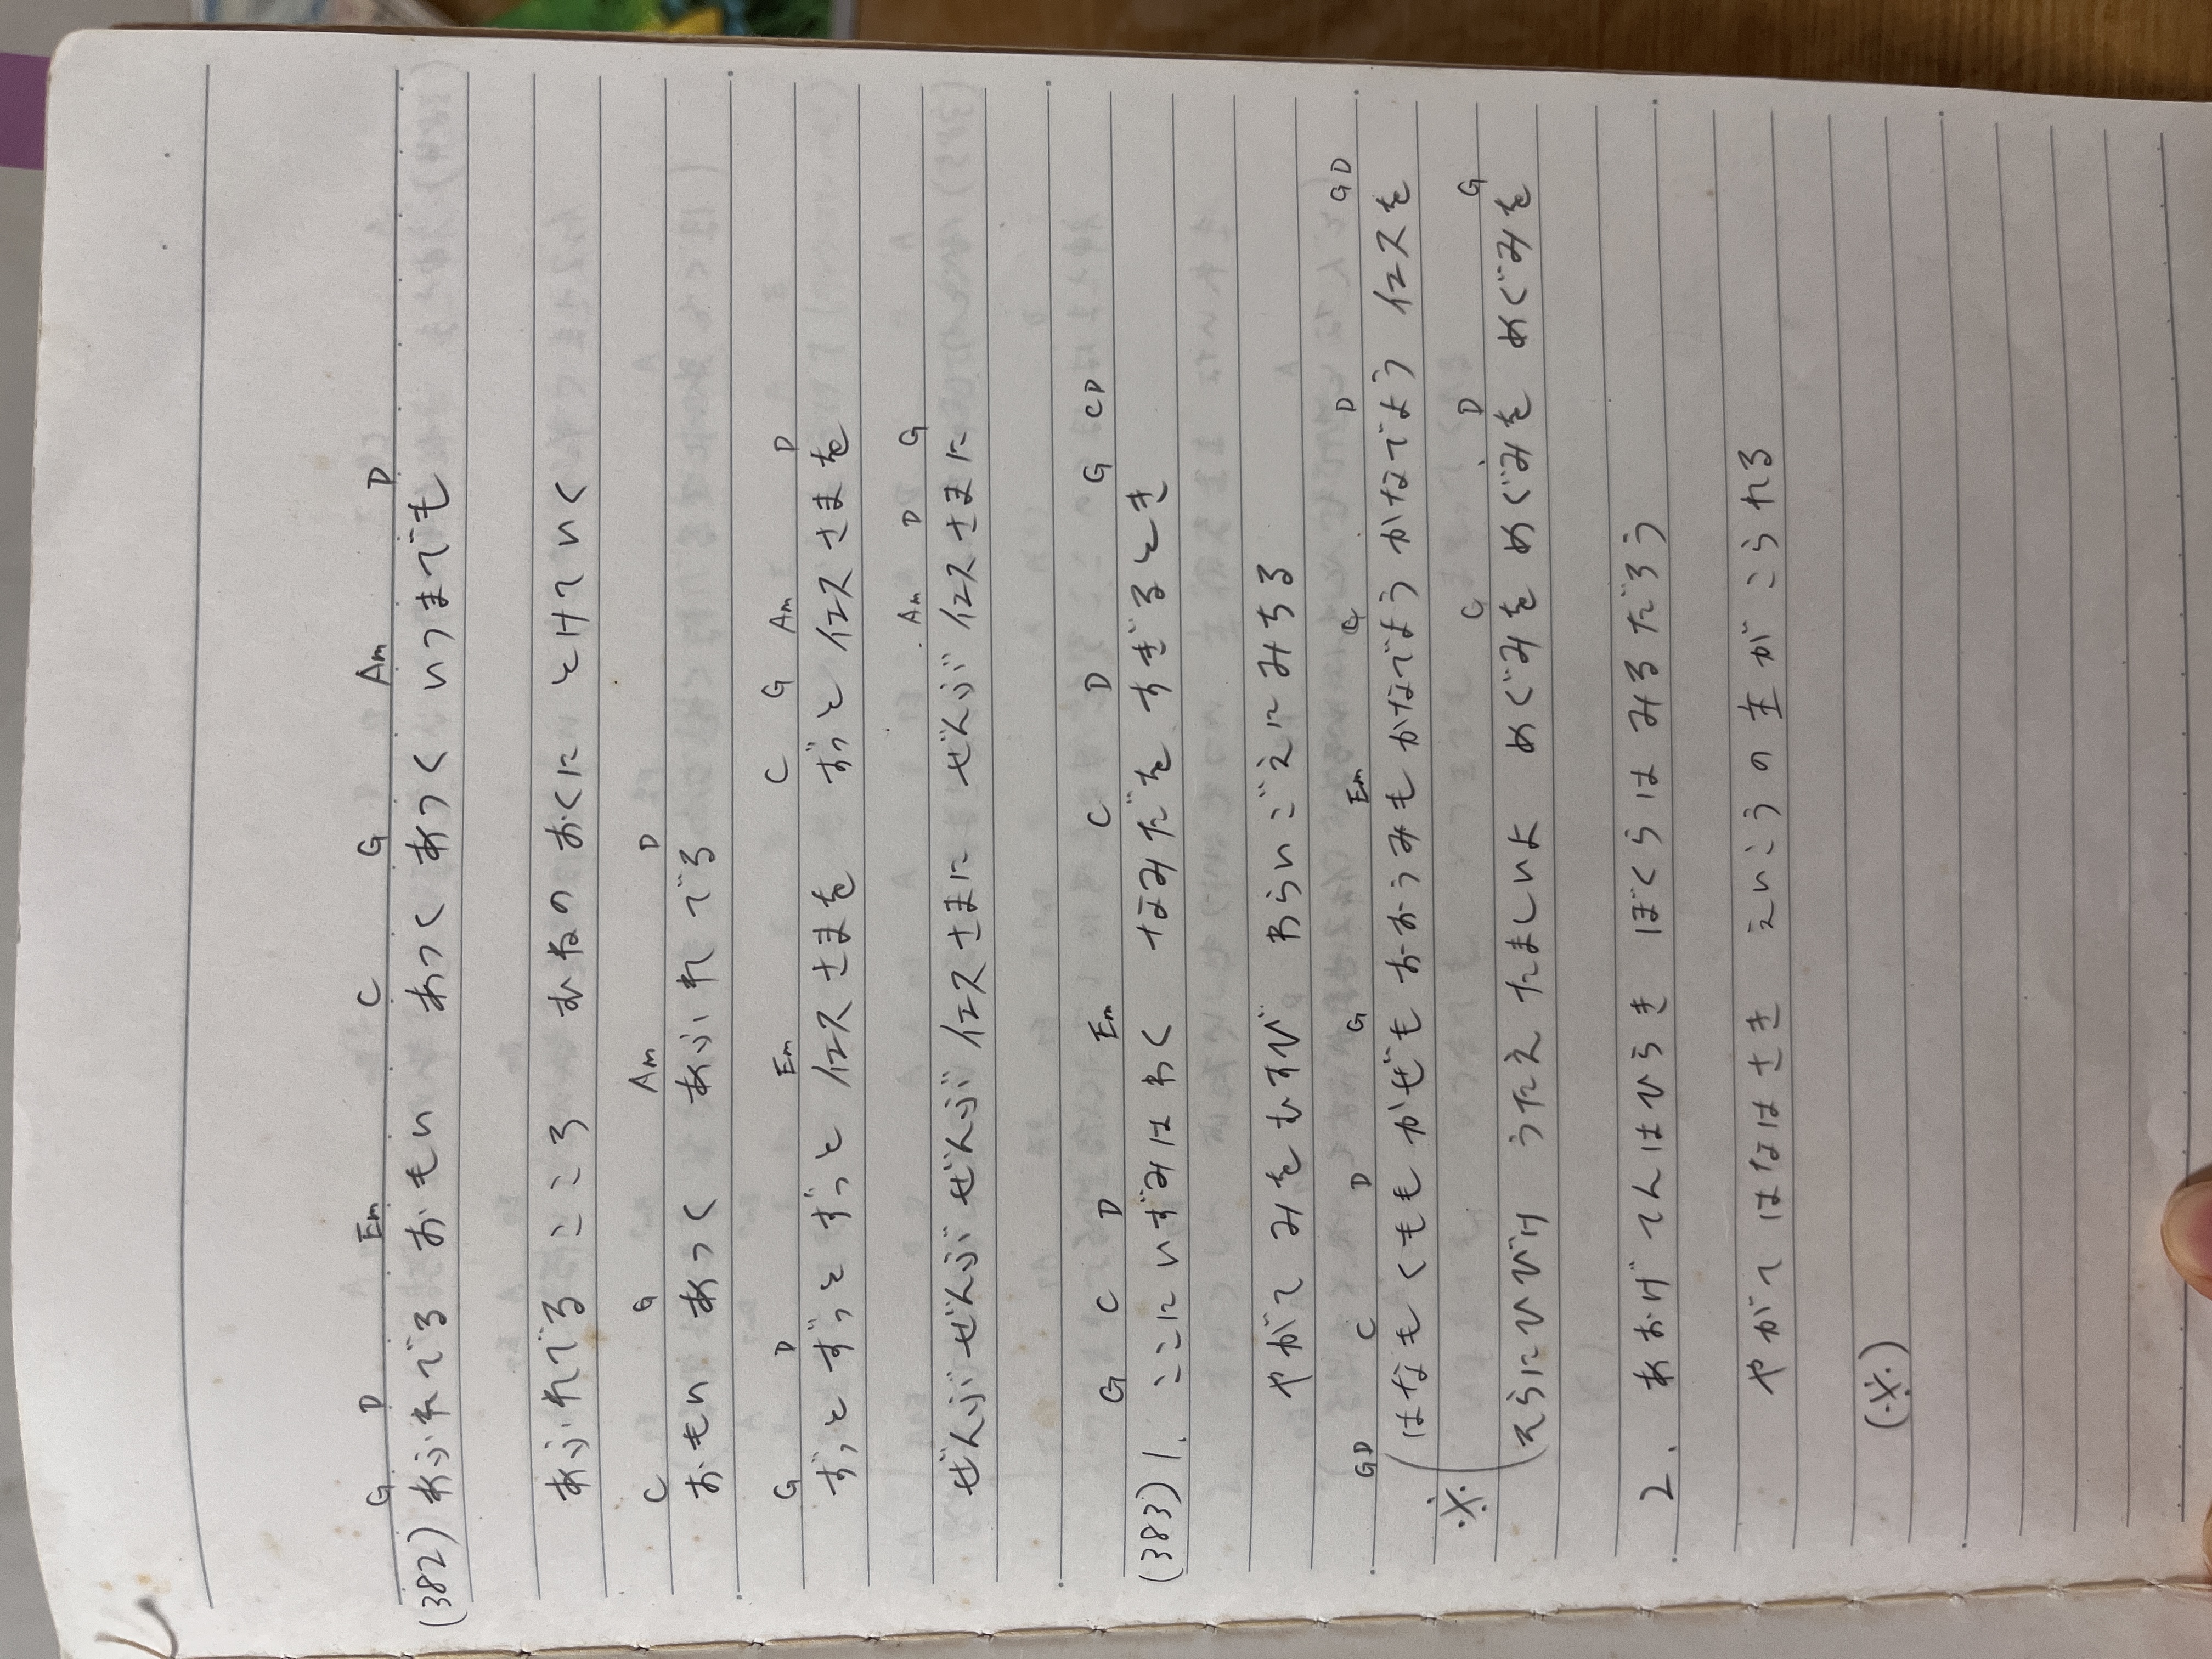 G D Em C G Am D
(382) あふれでる おもい あつく あつく いつまでも
あふれでる こころ むねの おくに とけていく
C G Am D
おもい あつく あふれでる
G D Em C G Am D
ずっと ずっと ずっと イエスさまを ずっと イエスさまを
Am D G
ぜんぶ ぜんぶ ぜんぶ イエスさまに ぜんぶ イエスさまに
G C D Em C D G CD
(383) 1. ここに いずみは わく なみだを すぎるとき
やがて みをむすび わらいごえに みちる
GD C D G Em C D GD
※ (はなも くもも かぜも おおうみも かなでよう かなでよう イエスを
C D G
(そらにひびけ うたえ たましいよ めぐみを めぐみを めぐみを
2. あおげ てんはひらき ぼくらは みるだろう
やがて はなはさき えいこうの 主が こられる
(※)